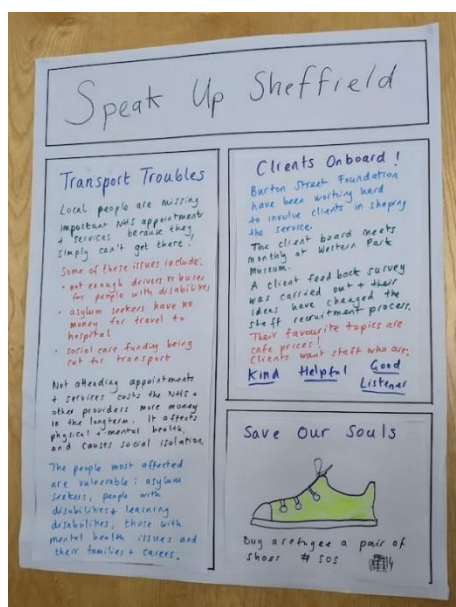 Speak Up Sheffield
Transport Troubles
Local people are missing
important NHS appointments
+ services because they
simply can't get there!
Some of these issues include:
• not enough drivers to buses
for people with disabilities
• asylum seekers have no
money for travel to
hospital
• social care funding being
cut for transport
Not attending appointments
+ services costs the NHS +
other providers more money
in the longterm. It affects
physical + mental health,
and causes social isolation.
The people most affected
are vulnerable: asylum
seekers, people with
disabilities + learning
disabilities, those with
mental health issues and
their families + carers.
Clients Onboard!
Burton Street Foundation
have been working hard
to involve clients in shaping
the service.
The client board meets
monthly at Western Park
Museum.
A client feedback survey
was carried out + their
ideas have changed the
staff recruitment process.
Their favourite topics are
cafe prices!
Clients want staff who are:
Kind Helpful Good
Listener
Save Our Souls
Buy a refugee a pair of
shoes # SOS